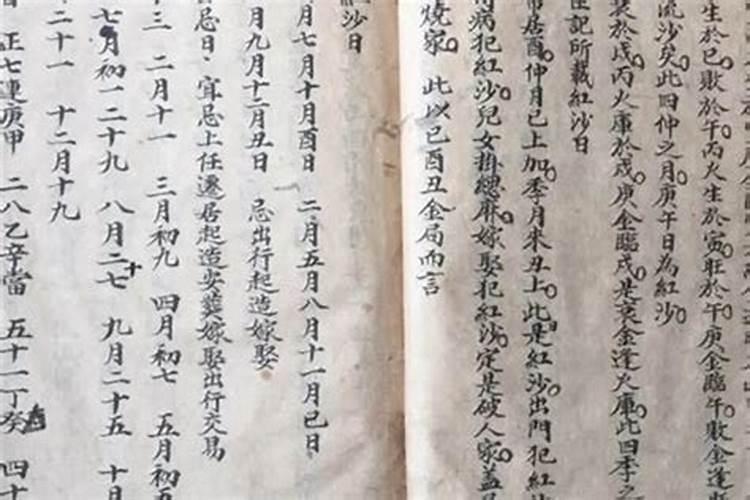 生於巳敗於午丙火生於寅旺於午庚金臨午敗金逢
流沙矣此四仲之月庚午日為紅沙
於戌丙火庫於戌庚金臨戌是衰金逢火庫此四季之
記所載紅沙日
居酉仲月巳上加季月來丑上此是紅沙出門犯紅
病犯紅沙兒女掛緦麻嫁娶犯紅沙定是破人家蓋
燒家 此以巳酉丑金局而言
紅沙日
月七月十月酉日 二月五月八月十一月巳日
月九月十二月丑日 忌出行起造嫁娶
忌日 宜忌上任遷居起造安葬嫁娶出行交易
十三 二月十一 三月初九 四月初七 五月初五
七月初一二十九 八月二十七 九月二十五 十月
二十一 十二月十九
正七連庚甲 二八乙辛當 五十一丁癸 四十